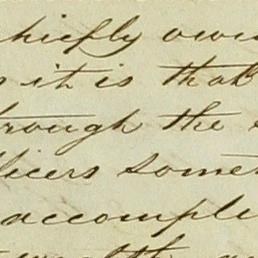 hiefly owin
it is that
rough the
ficers some
accomple